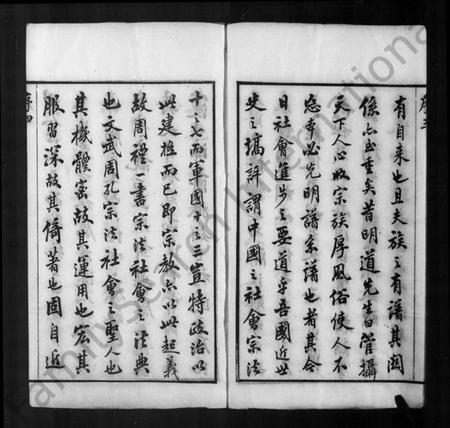 有自来也且夫族之有譜其関
係亦重矣昔明道先生曰管攝
天下人心收宗族厚風俗使人不
忘本必先明譜系譜也者其今
日社會進步之要道乎吾國近世
史之摛評謂中國之社會宗法
十之七而軍國十之三豈特政治以
此建推而已即宗教亦以此起義
故周禮一書宗法社會之法典
也文武周孔宗法社會之聖人也
其機體密故其運用也宏其
服習深故其傳著也固自近
序四
FamilySearch International